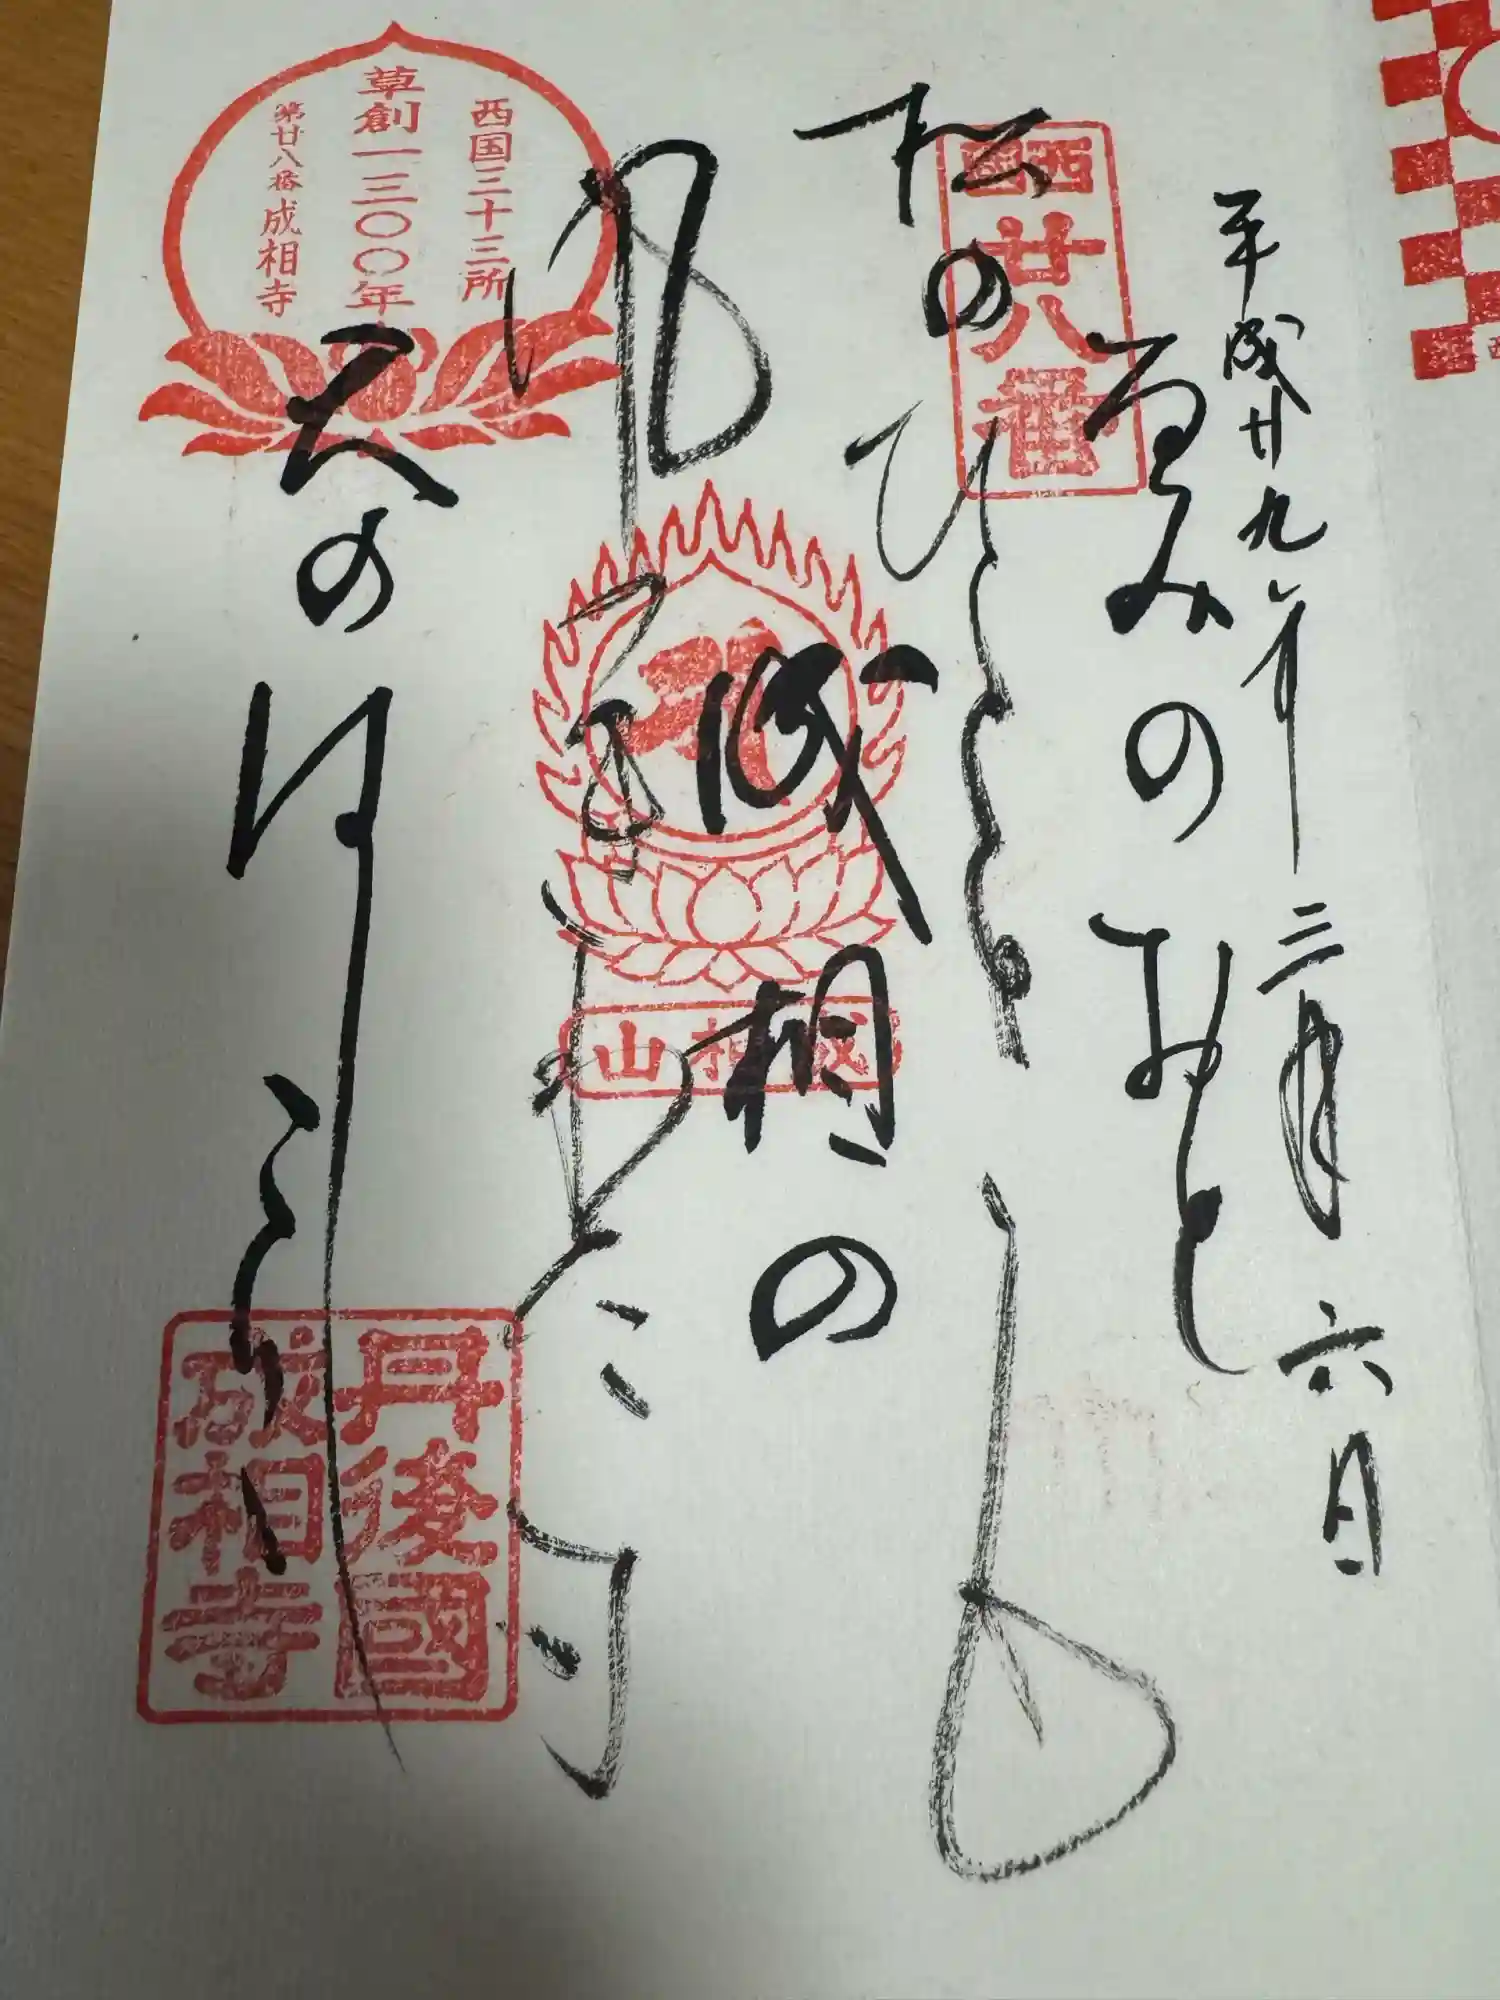 平成廿九年三月六日
なみのおと
松のひ
成相の
風
天のはし
西國
廿八番
西国三十三所
草創一三〇〇年
第廿八番成相寺
成相山
丹後國
成相寺